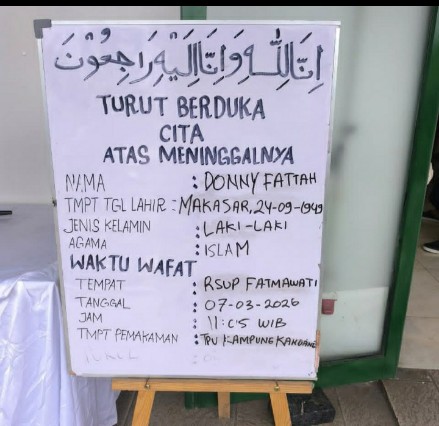 اِنَّا لِلّٰهِ وَاِنَّا اِلَيْهِ رَاجِعُوْنَ
TURUT BERDUKA
CITA
ATAS MENINGGALNYA
NAMA : DONNY FATTAH
TMPT TGL LAHIR : MAKASAR, 24-09-1949
JENIS KELAMIN : LAKI-LAKI
AGAMA : ISLAM
WAKTU WAFAT
TEMPAT : RSUP FATMAWATI
TANGGAL : 07-03-2026
JAM : 11:05 WIB
TMPT PEMAKAMAN : TPU KAMPUNG KANDANG